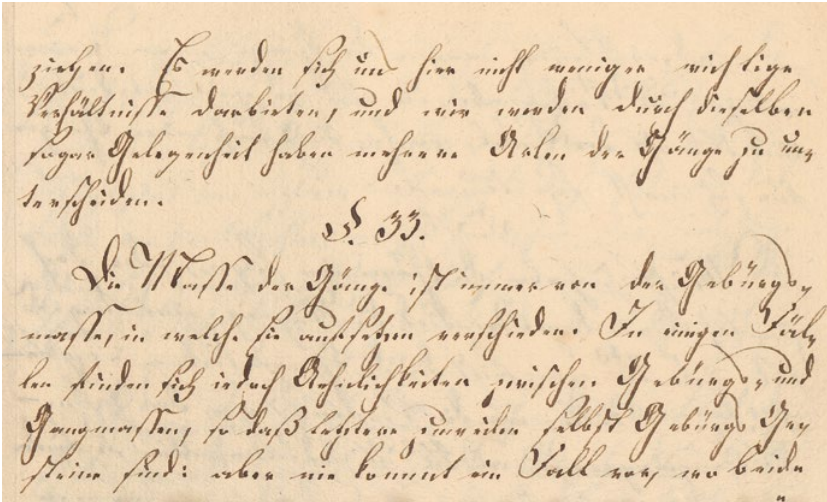 ziehen. Es werden sich uns hier nicht weniger wichtige
Verhältnisse darbieten, und wir werden durch dieselben
sogar Gelegenheit haben mehrere Arten der Gänge zu un-
terscheiden.
§. 33.
Die Masse der Gänge ist immer von der Gebürgs-
masse, in welche sie aufsetzen verschieden. In einigen Fäl-
len finden sich iedoch Aehnlichkeiten zwischen Gebürgs- und
Gangmassen, so daß letztere zuweilen selbst Gebürgs Ge-
steine sind: aber nie kommt ein Fall vor, wo beide